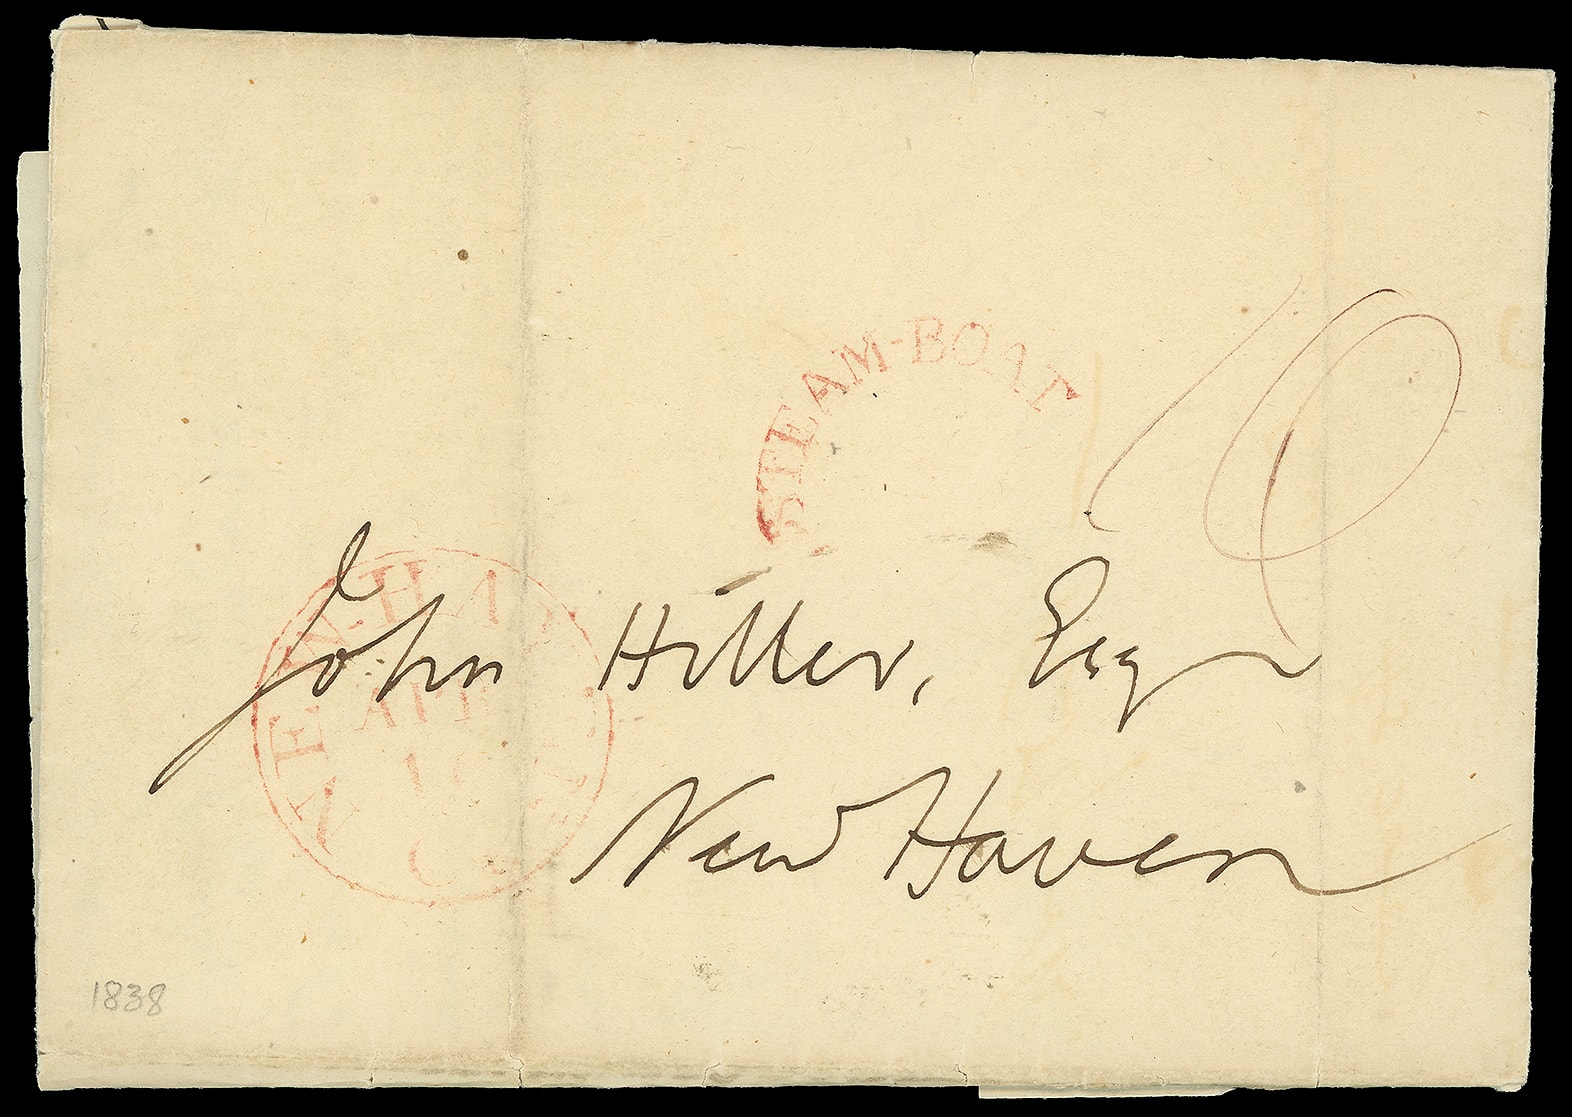 STEAM-BOAT
10
NEW-HAVEN
APR
10
Ct.
John Hiller, Esqr
New Haven
1838